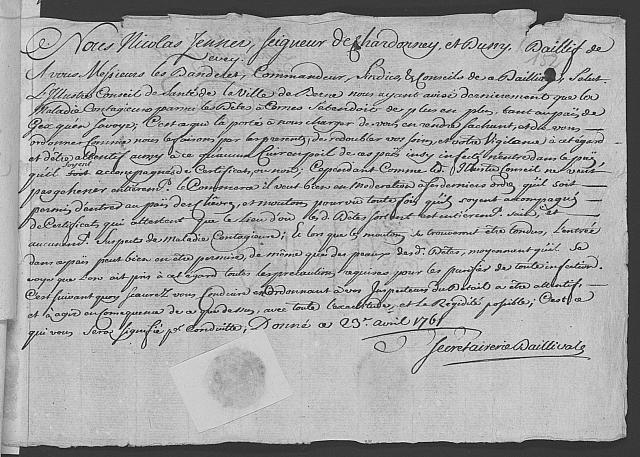 Nous Nicolas Jenner, Seigneur de Chardonney, et Bussy, Baillif de
152
Vevey
A vous Messieurs les Banderet, Commandeur, Sindics, & Conseils de ce Bailliage, Salut.
L'Illustre Conseil de Santé de la Ville de Berne nous ayant avisé dernierement que la
Maladie Contagieuse parmi les Bêtes à Cornes S'etendoit de plus en plus, tant au païs de
Gex qu'en Savoye; C'est ce qui le porte à nous charger de vous en rendre sachant, et de vous
ordonner comme nous le faisons par les presentes, de redoubler vos soins, et votre Vigilance à cet egard
et d'être attentif aussy à ce qu'aucun Cuir en poil de ces païs infectés n'entre dans le païs,
soyent
qu'ils soit accompagnés de Certificats, ou non; Cependant Comme led. Illustre Conseil ne veut
pas gehener entierem.t le Commerce, il veut bien en moderation de ses derniers ordres qu'il soit
permis d'entrer au païs des chèvres, et moutons pourvû toute fois qu'ils soyent accompagnés
de Certificats qui attestent que le lieu d'où les d. Bêtes sortent est entierem.t Sain, et
aucunem.t Suspects de Maladie Contagieuse; Et lors que les moutons se trouveront être tondus, L'entrée
dans ce païs peut bien en être permise, de même que des peaux des d. Bêtes, moyennant qu'il se
voye que l'on ait pris à cet egard toutes les precautions requises pour les purifier de toute infection.
C'est suivant quoy scaurez vous Conduire en ordonnant à vos Inspecteurs du Betail d'être attentifs
et d'agir en consequence de ce que dessus, avec toute l'exactitude, et la Regidité possible; C'est ce
qui vous sera signifié p.r Conduitte; Donné ce 23.e avril 1761
Secretairerie Baillivale